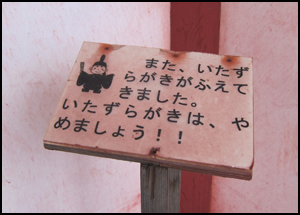 また、いたず
らがきがふえて
きました。
いたずらがきは、や
めましょう！！